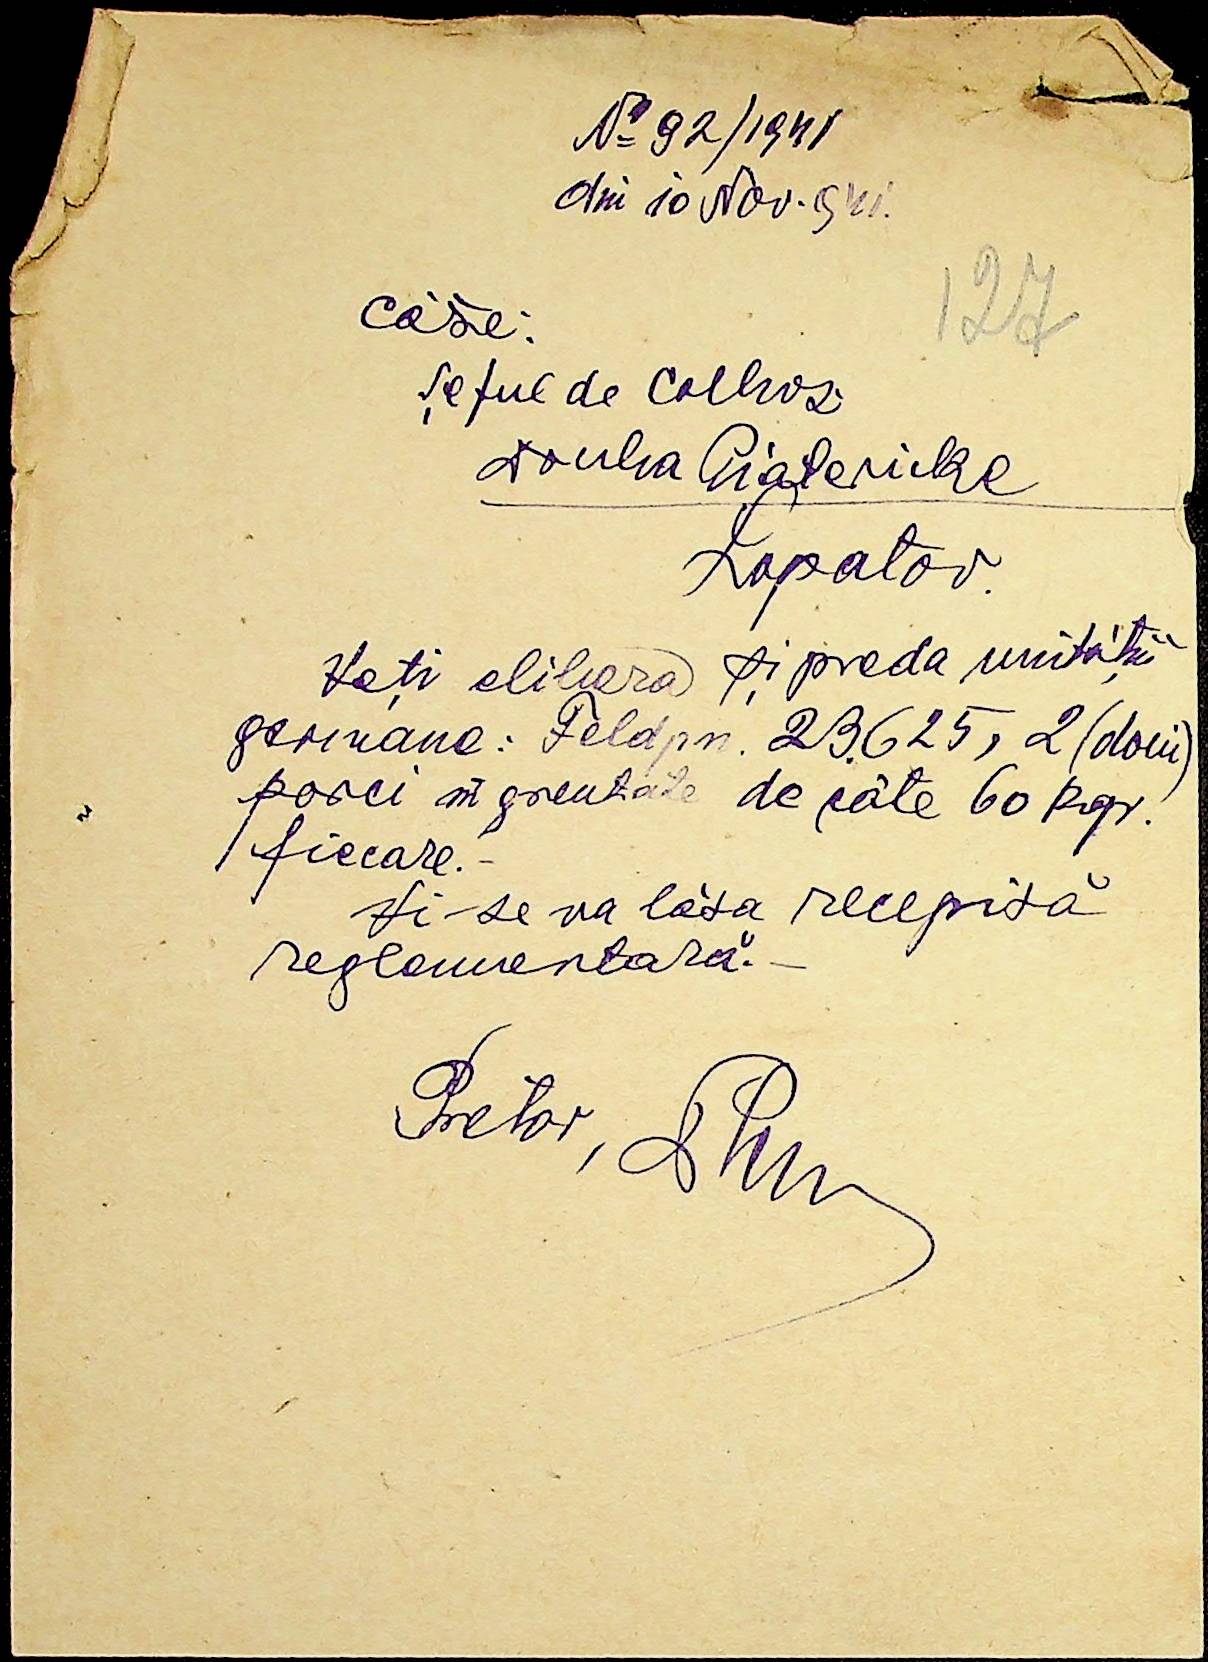 No 92/1941
din 10 Nov. 941.
127
Către:
Șeful de Colhoz
Lopatov.
Veți elibera și preda unității
germane: Feldpn. 23.625, 2 (doui)
porci în greutate de câte 60 kgr.
fiecare.-
Vi-se va lăsa recepisă
reglementară.-
Pretor,